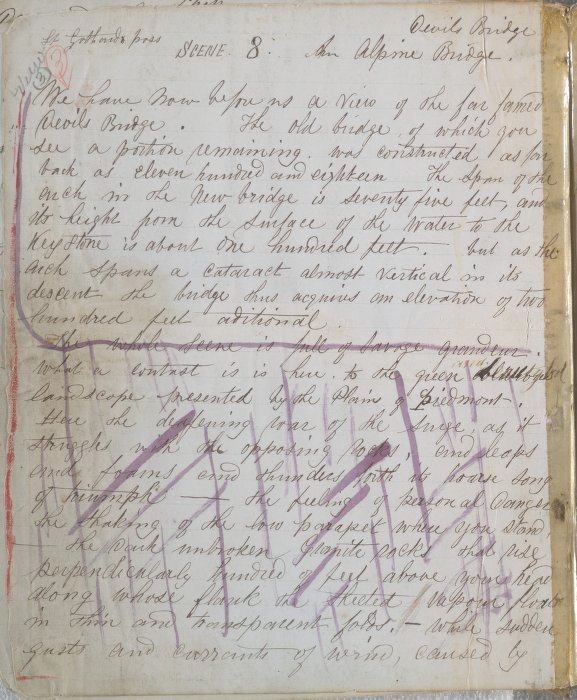 Devils Bridge
St Gothards pass
SCENE. 8. An Alpine Bridge.
View
We have now before us a View of the far famed
Devils Bridge. The old bridge, of which you
see a portion remaining. was constructed as far
back as eleven hundred and eighteen The Span of the
arch in the New bridge is seventy five feet, and
its height from the surface of the Water to the
Key Stone is about one hundred feet. but as the
Arch Spans a Cataract almost vertical in its
descent the bridge thus acquires an elevation of two
hundred feet aditional.
The whole Scene is full of Savage grandeur.
What a contrast is is here. to the green
landscape presented by the Plains of Piedmont.
Here the deafening roar of the Surge, as it
struggles with the opposing rocks, and leaps
and foams and thunders forth its hoarse Song
of triumph — the feeling of personal danger
the Shaking of the low parapet where you stand
— The dark unbroken Granite rocks that rise
perpendicularly hundred of feet above your head
along whose flank the sheeted Vapour floats
in thin and transparent folds, — while sudden
gusts and currants of wind, caused by